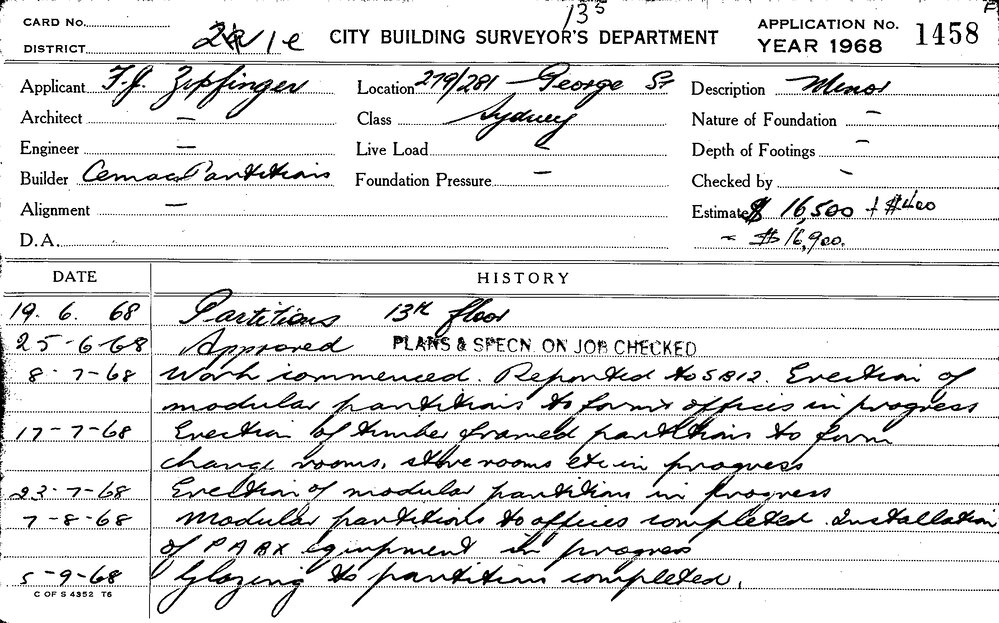 CARD No.
DISTRICT
CITY BUILDING SURVEYOR'S DEPARTMENT
APPLICATION No. 1458
YEAR 1968
Applicant F.J. Zipfinger
Location 279/281 George St
Description Minor
Architect —
Class Sydney
Nature of Foundation —
Engineer —
Live Load —
Depth of Footings —
Builder Cemac Partitions
Foundation Pressure —
Checked by —
Alignment —
Estimate $ 16,500 + $400
D.A.
= $16,900.
DATE HISTORY
19. 6. 68 Partitions 13th floor
25-6-68 Approved PLANS & SPECN. ON JOB CHECKED
8-7-68 Work commenced. Reported to SB12. Erection of
modular partitions to form offices in progress
17-7-68 Erection of timber framed partitions to form
change rooms, store rooms etc in progress
23-7-68 Erection of modular partitions in progress
7-8-68 Modular partitions to offices completed. Installation
of PABX equipment in progress
5-9-68 Glazing to partitions completed.
C OF S 4352 T6